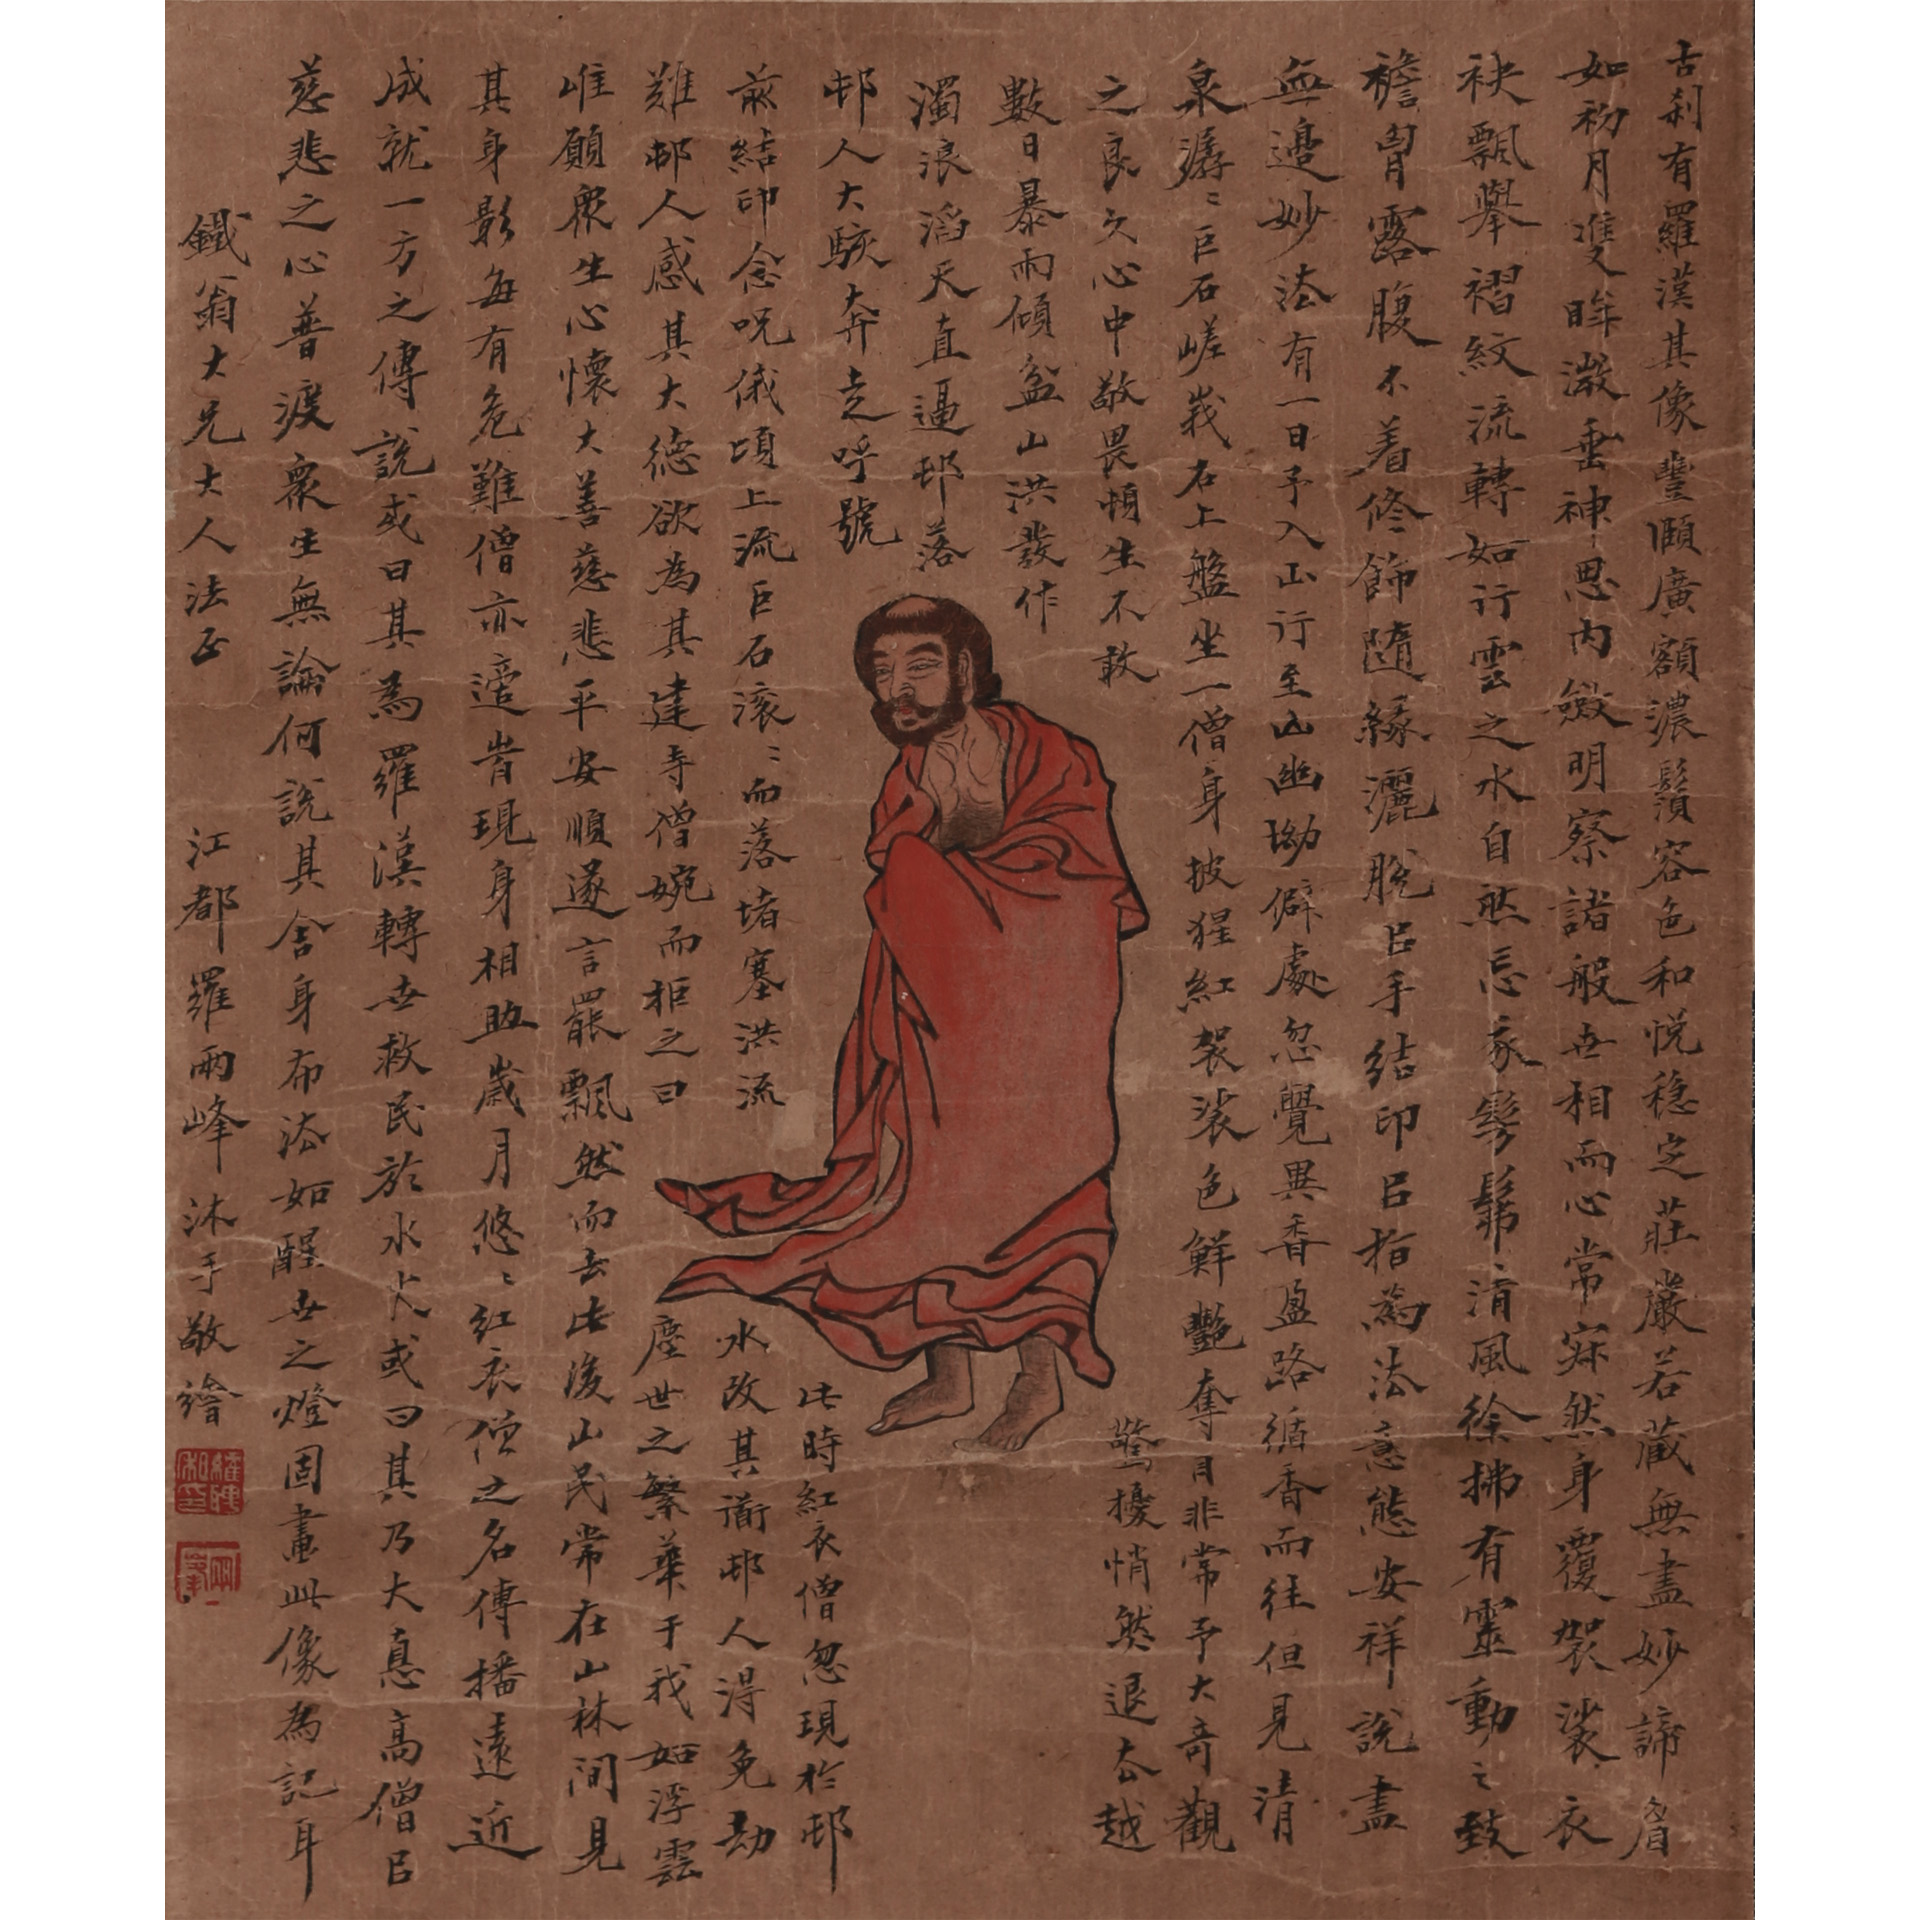 古刹有羅漢其像豐頤廣額濃鬚容色和悅穩定莊嚴若藏無盡妙諦眉
如初月雙眸澂垂神思內斂明察諸般世相而心常寂然身覆袈裟衣
袂飄舉褶紋流轉如行雲之水自然忘家髣髴清風徐拂有靈動之致
襜胷露腹不着修飾隨緣灑脫㠯手結印㠯指為法意態安祥說盡
無邊妙法有一日予入山行至山幽坳僻處忽覺異香盈路循香而往但見清
泉潺〻巨石嵯峩石上盤坐一僧身披猩紅袈裟色鮮艷奪目非常予大奇觀
之良久心中敬畏頓生不敢驚擾悄然退去越
數日暴雨傾盆山洪發作
濁浪滔天直逼邨落
邨人大駭奔走呼號此時紅衣僧忽現於邨
前結印念呪俄頃上流巨石滚〻而落堵塞洪流水改其衜邨人得免劫
難邨人感其大德欲為其建寺僧婉而拒之曰塵世之繁華于我如浮雲
唯願眾生心懷大善慈悲平安順遂言罷飄然而去此後山民常在山林間見
其身影每有危難僧亦適旹現身相助歲月悠〻紅衣僧之名傳播遠近
成就一方之傳說或曰其為羅漢轉世救民於水火或曰其乃大悳高僧㠯
慈悲之心普渡眾生無論何說其舍身布法如醒世之燈固畫此像為記耳
鐵翁大兄大人法正　江都羅兩峰沐手敬繪